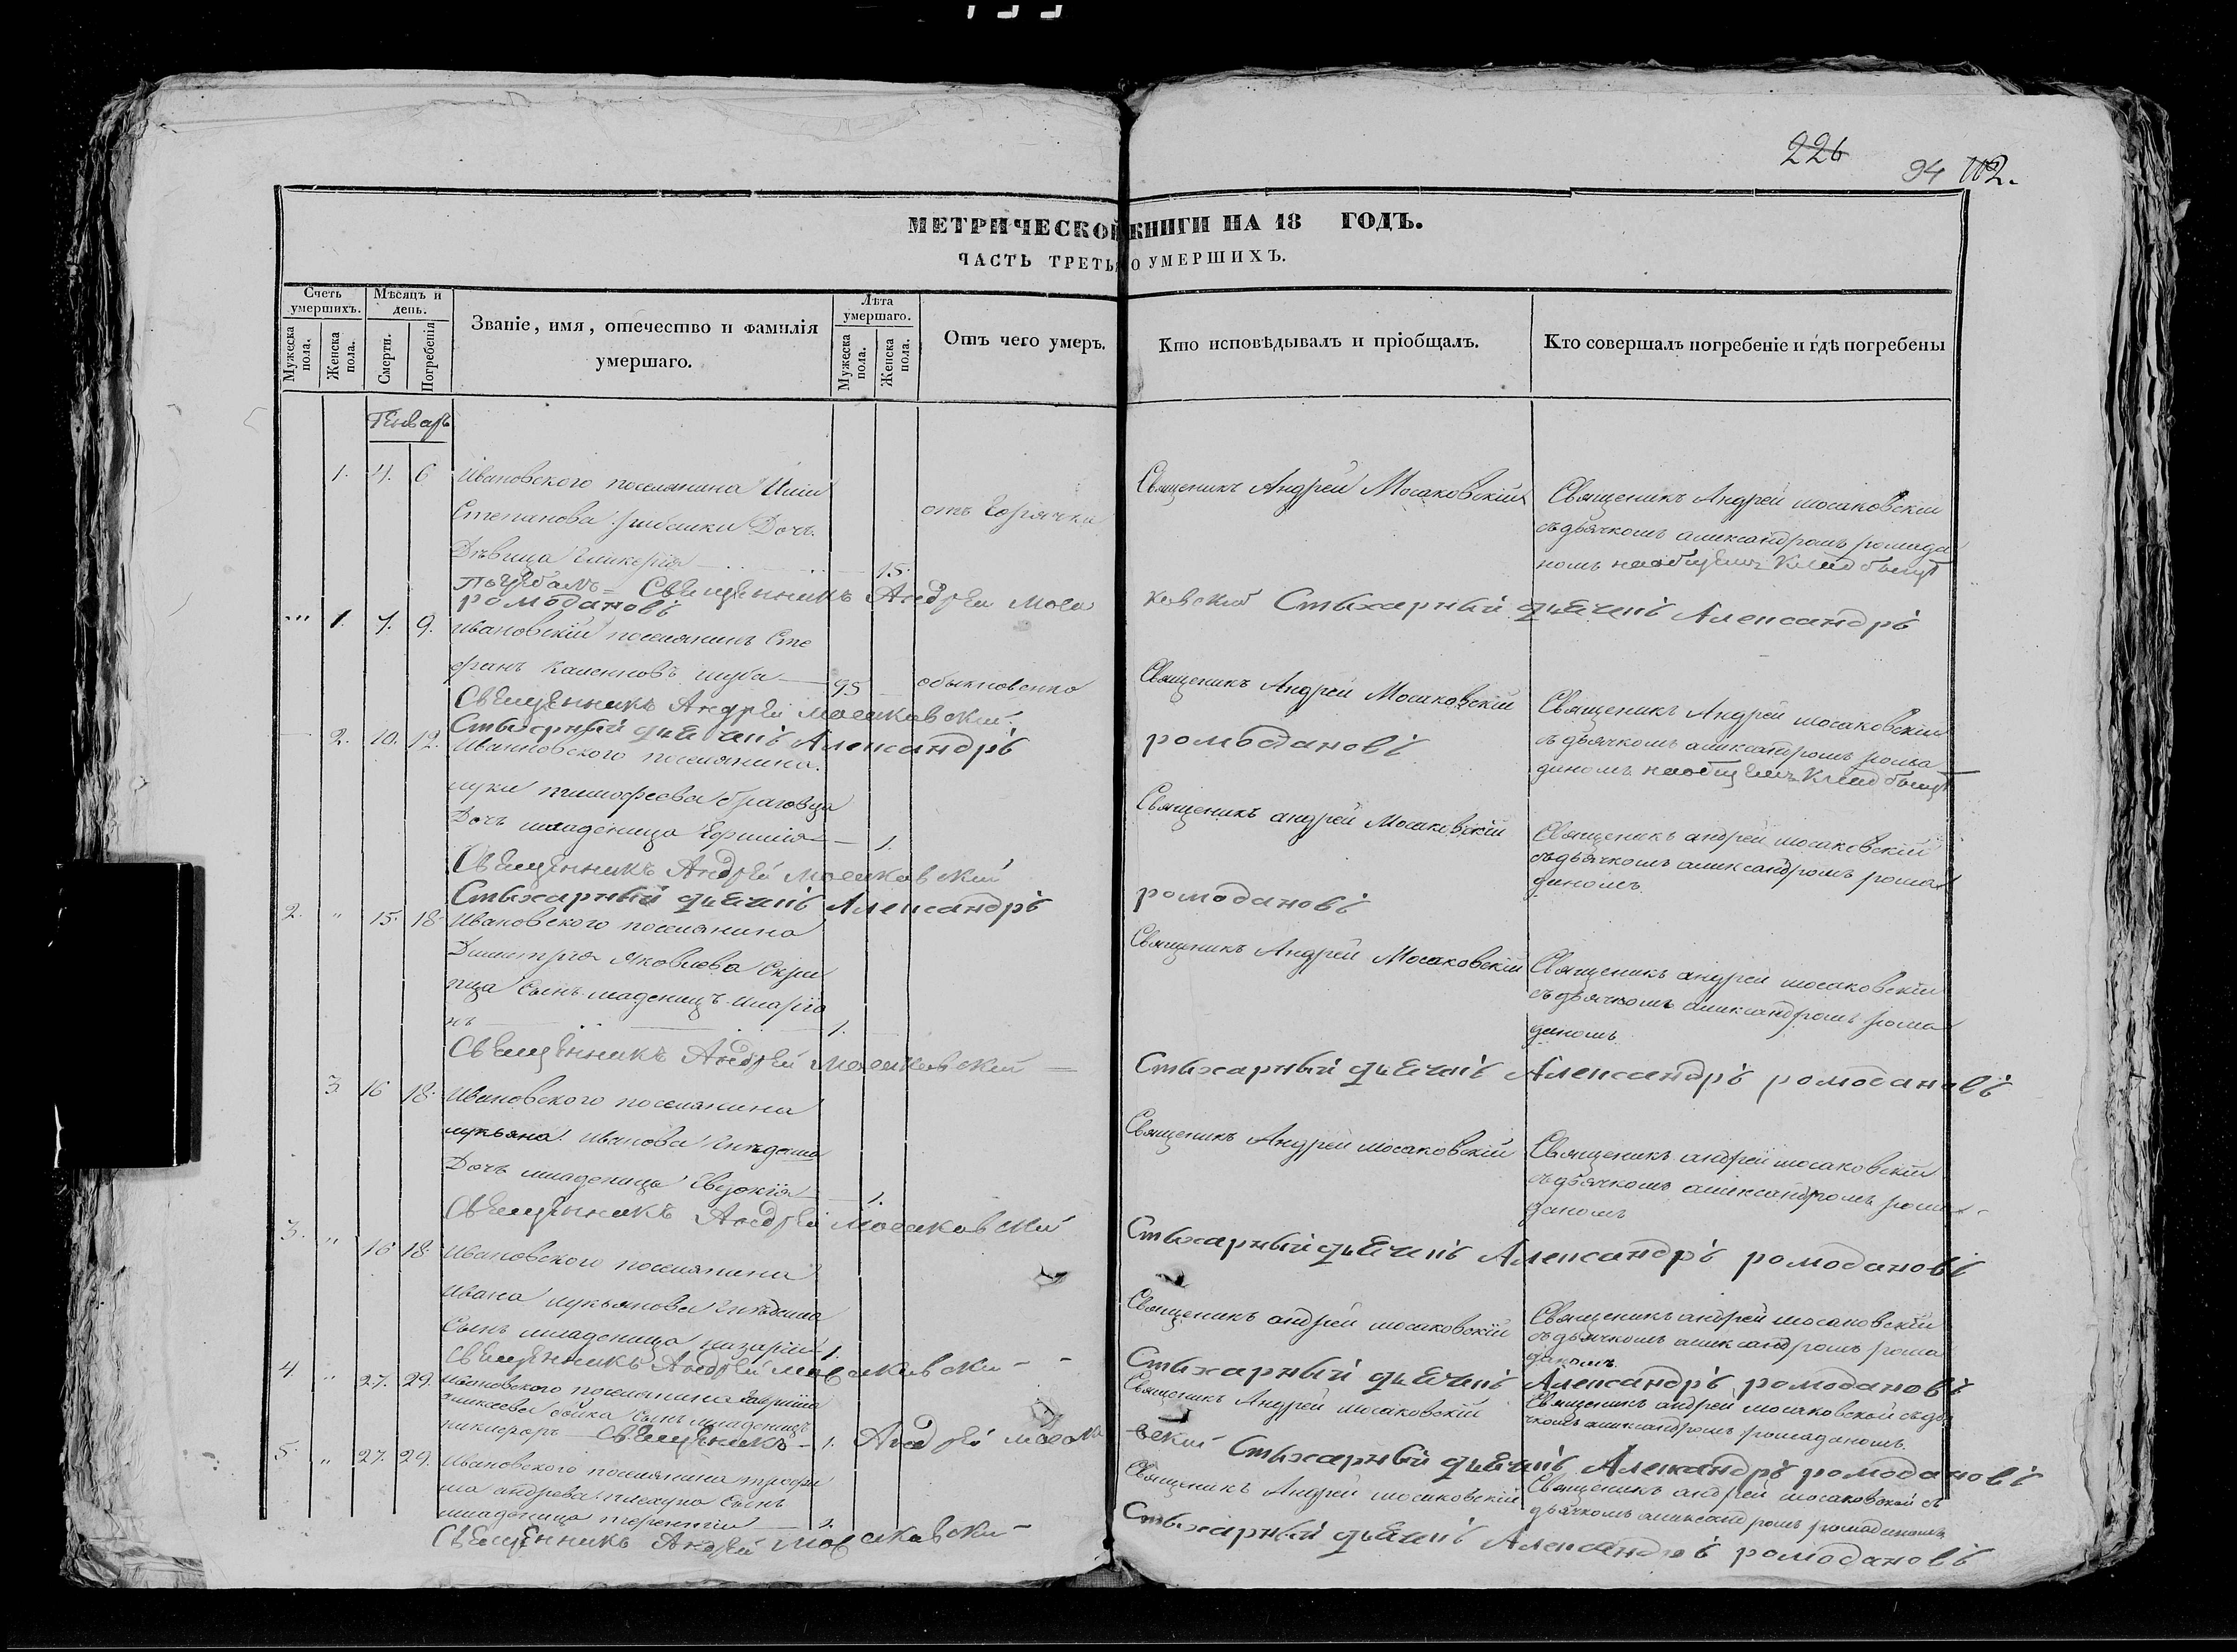 226
94 102.
МЕТРИЧЕСКОЙ КНИГИ НА 18 ГОДЪ.
ЧАСТЬ ТРЕТЬЯ О УМЕРШИХЪ.
Счетъ умершихъ.
Мѣсяцъ и день.
Званіе, имя, отечество и фамилія умершаго.
Лѣта умершаго.
Отъ чего умеръ.
Кто исповѣдывалъ и пріобщалъ.
Кто совершалъ погребеніе и гдѣ погребены
Мужеска пола.
Женска пола.
Смерти.
Погребенія
Мужеска пола.
Женска пола.
Генварь
1. 4. 6 Ивановского поселянина
Степанова Дочъ
Дѣвица Гликерія 15.
отъ горячки
Священикъ Андрей Мосаковскій
Священикъ Андрей мосаковскій
съ дьячкомъ александромъ ромада
номъ наобщемъ кладбищѣ
погребалъ Священникъ Андрей Моса
ковский Стихарный дьячокъ Александръ
ромодановъ
1. 7. 9. Ивановскій поселянинъ Сте
фанъ шуба 95
обыкновенно
Священикъ Андрей Мосаковскій
Священикъ Андрей мосаковскій
съ дьячкомъ александромъ рома
даномъ наобщемъ кладбищѣ
Священникъ Андрей мосаковский
Стихарный дьячокъ Александръ
ромодановъ
2. 10. 12. Ивановского поселянина
луки тимофеева
Дочъ младеница 1.
Священикъ андрей Мосаковскій
Священикъ андрей мосаковскій
съдьячкомъ александромъ рома
даномъ
Священникъ Андрей мосаковский
Стихарный дьячокъ Александръ
ромодановъ
2. " 15. 18 Ивановского поселянина
Димитрія Яковлева Скри
пца Сынъ младенищъ иларіо
нъ 1.
Священикъ Андрей Мосаковскій
Священикъ андрей мосаковскій
съдьячкомъ александромъ рома
даномъ
Священникъ Андрей мосаковский
Стихарный дьячокъ Александръ ромодановъ
3 16 18. Ивановского поселянина
лукьяна Иванова
Дочъ младеница Евдокія 1.
Священикъ Андрей мосаковскій
Священикъ андрей мосаковскій
съдьячкомъ александромъ рома
даномъ
Священникъ Андрей мосаковский
Стихарный дьячокъ Александръ ромодановъ
3. " 16 18. Ивановского поселянина
Ивана лукьянова
Сынъ младеница назарій 1.
Священикъ андрей мосаковскій
Священикъ андрей мосаковскій
съдьячкомъ александромъ рома
даномъ
Священникъ Андрей мосаковски
Стихарный дьячокъ Александръ ромодановъ
4 " 27. 29. Ивановского поселянина
бойка Сынъ младеницъ
никифоръ 1.
Священикъ Андрей мосаковскій
Священикъ андрей мосаковской съдья
чкомъ александромъ ромаданомъ.
Священникъ Андрей мосако
вский Стихарный дьячокъ Александръ ромодановъ
5. " 27. 29. Ивановского поселянина трофи
ма андрева Сынъ
младеница терентій 1.
Священикъ Андрей мосаковскій
Священикъ андрей мосаковской съ
дьячкомъ александромъ ромаданомъ
Священникъ Андрей мосаковски
Стихарный дьячокъ Александръ ромодановъ